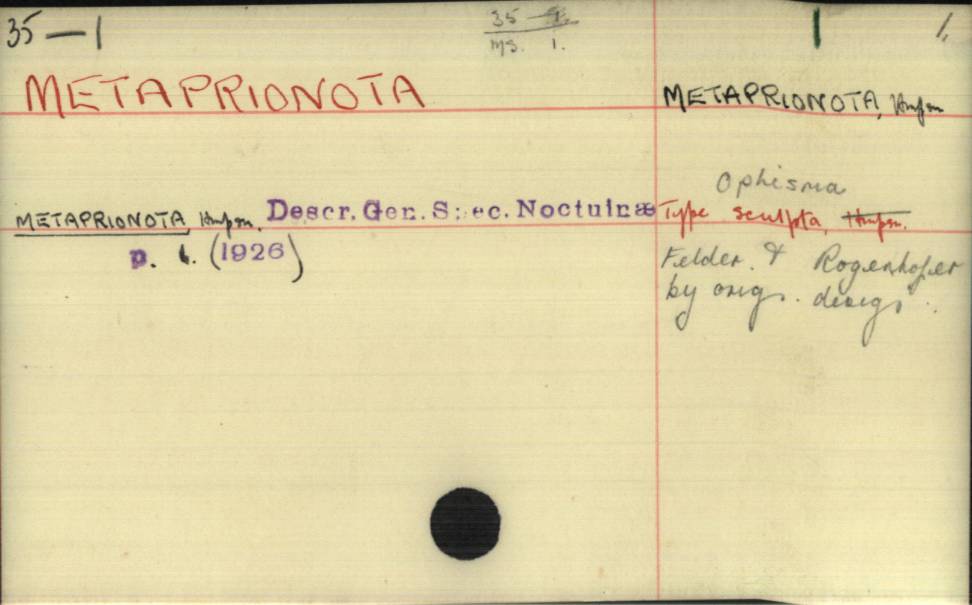 35 — 1
35 — 1.
ms. 1.
1
1.
METAPRIONOTA
METAPRIONOTA, Hmpsn
METAPRIONOTA Hmpsn. Descr. Gen. Spec. Noctuinæ
p. 1. (1926)
Ophisma
Type sculpta, Hmpsn.
Felder. & Rogenhofer
by orig. desig.